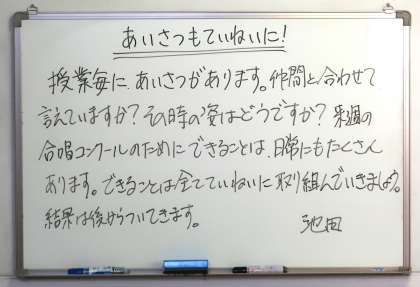 あいさつもていねいに!
授業毎に、あいさつがあります。仲間と合わせて
言えていますか?その時の姿はどうですか?来週の
合唱コンクールのためにできることは、日常にもたくさん
あります。できることは全てていねいに取り組んでいきましょう。
結果は後からついてきます。
池田